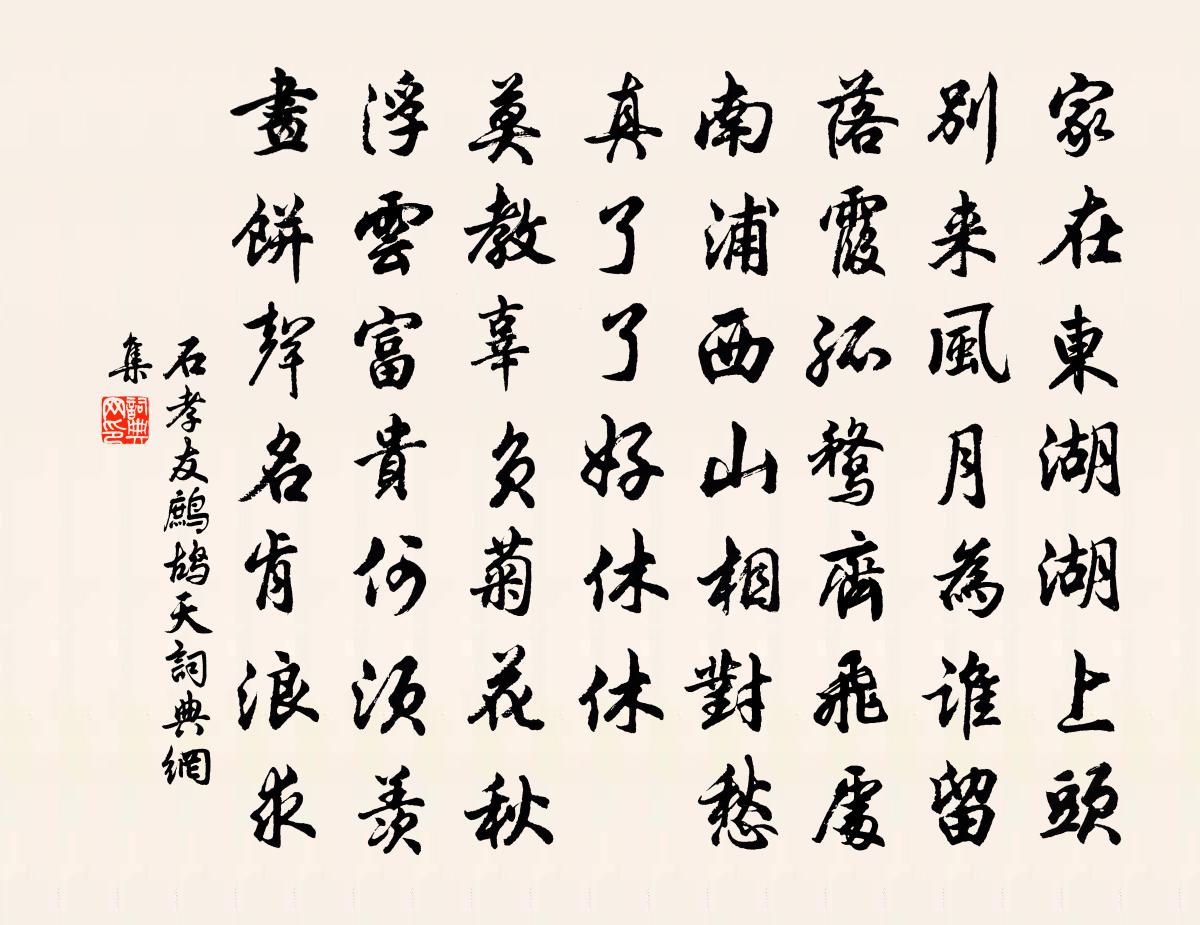 家在東湖湖上頭
別来風月為誰留
落霞孤鶩齊飛處
南浦西山相對愁
真了了好休休
莫教辜負菊花秋
浮雲富貴何須羨
畫餅聲名肯浪求
石孝友鷓鴣天詞典網
集
詞典網印